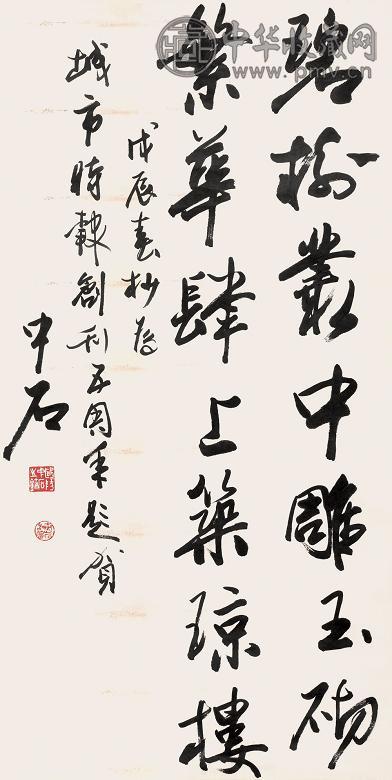 碧樹叢中雕玉砌
繁華肆上築琼樓
戊辰春抄為
城市時報創刊五周年題賀
中石
中华收藏网
www.pmv.cn